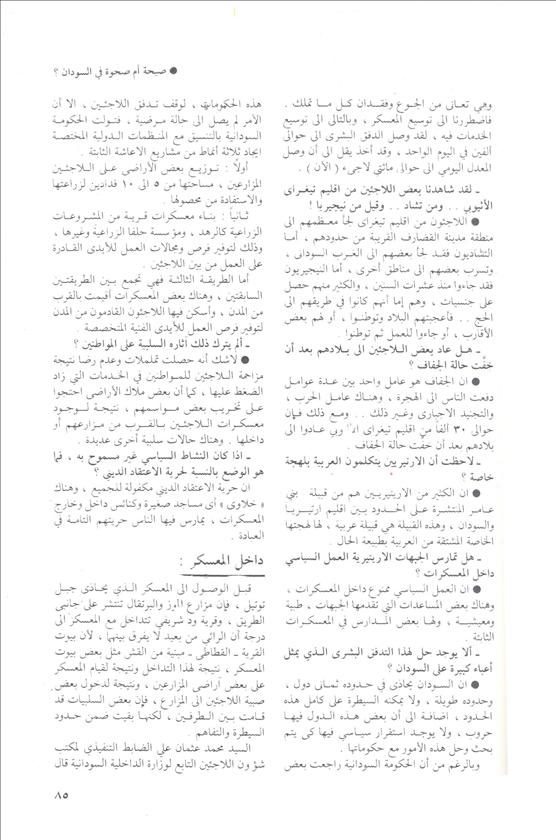 ● صبحة أم صحوة في السودان ؟
وهي تعانى من الجوع وفقدان كل ما تملك .
فاضطررنا الى توسيع المعسكر ، وبالتالى الى توسيع
الخدمات فيه ، لقد وصل الدفق البشرى الى حوالى
ألفين في اليوم الواحد ، وقد أخذ يقل الى أن وصل
المعدل اليومي الى حوالى مائتى لاجىء ( الآن ) .
ـ لقد شاهدنا بعض اللاجئين من اقليم تيغراى
الأثيوبي . . ومن تشاد . . وقيل من نيجيريا !
● اللاجئون من اقليم تيغراى لجأ معظمهم الى
منطقة مدينة القضارف القريبة من حدودهم ، أما
التشاديون فقد لجأ بعضهم الى الغرب السودانى ،
وتسرب بعضهم الى مناطق أخرى ، أما النيجيريون
فقد جاءوا منذ عشرات السنين ، والكثير منهم حصل
على جنسيات ، وهم إما أنهم كانوا في طريقهم الى
الحج . . فأعجبتهم البلاد وتوطنوا ، أو لهم بعض
الأقارب ، أو جاءوا للعمل ثم توطنوا .
ـ هل عاد بعض اللاجئين الى بلادهم بعد أن
خفّت حالة الجفاف ؟
● ان الجفاف هو عامل واحد بين عدة عوامل
دفعت الناس الى الهجرة ، وهناك عامل الحرب ،
والتجنيد الاجبارى وغير ذلك . . ومع ذلك فإن
حوالى ٣٠ ألفاً من تيغراى عادوا الى
بلادهم بعد أن خفّت حالة الجفاف .
ـ لاحظت أن الارتيريين يتكلمون العربية بلهجة
خاصة ؟
● ان الكثير من الاريتريين هم من قبيلة بني
عامر المنتشرة على الحدود بين اقليم ارتيريا
والسودان ، وهذه القبيلة هي قبيلة عربية ، لها لهجتها
الخاصة المشتقة من العربية بطبيعة الحال .
ـ هل تمارس الجبهات الاريتيرية العمل السياسي
داخل المعسكرات ؟
● ان العمل السياسي ممنوع داخل المعسكرات ،
وهناك بعض المساعدات التي تقدمها الجبهات ، طبية
ومعيشية ، ولها بعض المدارس في المعسكرات
الثابتة .
ـ ألا يوجد حل لهذا التدفق البشرى الذي يمثل
أعباء كبيرة على السودان ؟
● ان السودان يحاذى في حدوده ثمانى دول ،
وحدوده طويلة ، ولا يمكنه السيطرة على كامل هذه
الحدود ، اضافة الى أن بعض هذه الدول فيها
حروب ، ولا يوجد استقرار سياسي فيها كى يتم
بحث وحل هذه الأمور مع حكوماتها .
وبالرغم من أن الحكومة السودانية راجعت بعض
هذه الحكومات ، لوقف تدفق اللاجئين ، الا أن
الأمر لم يصل الى حالة مرضية ، فتولت الحكومة
السودانية بالتنسيق مع المنظمات الدولية المختصة
ايجاد ثلاثة أنماط من مشاريع الاعاشة الثابتة .
أولاً : توزيع بعض الأراضى على اللاجئين
المزارعين ، مساحتها من ٥ الى ١٠ فدادين لزراعتها
والاستفادة من محصولها .
ثانياً : بناء معسكرات قريبة من المشروعات
الزراعية كالرهد ، ومؤسسة حلفا الزراعية وغيرها ،
وذلك لتوفير فرص ومجالات العمل للأيدى القادرة
على العمل من بين اللاجئين .
أما الطريقة الثالثة فهي تجمع بين الطريقتين
السابقتين ، وهناك بعض المعسكرات أقيمت بالقرب
من المدن ، وأسكن فيها اللاجئون القادمون من المدن
لتوفير فرص العمل للأيدى الفنية المتخصصة .
ـ ألم يترك ذلك اثاره السلبية على المواطنين ؟
● لاشك أنه حصلت تململات وعدم رضا نتيجة
مزاحمة اللاجئين للمواطنين في الخدمات التي زاد
الضغط عليها ، كما أن بعض ملاك الأراضى احتجوا
على تخريب بعض مواسمهم ، نتيجة لوجود
معسكرات اللاجئين بالقرب من مزارعهم أو
داخلها . وهناك حالات سلبية أخرى عديدة .
ـ اذا كان النشاط السياسي غير مسموح به ، فما
هو الوضع بالنسبة لحرية الاعتقاد الديني ؟
ان حرية الاعتقاد الديني مكفولة للجميع ، وهناك
« خلاوى » أى مساجد صغيرة وكنائس داخل وخارج
المعسكرات ، يمارس فيها الناس حريتهم التامة في
العبادة .
داخل المعسكر :
قبل الوصول الى المعسكر الذي يحاذى جبل
توتيل ، فإن مزارع الموز والبرتقال تنتشر على جانبي
الطريق ، وقرية ود شريفي تتداخل مع المعسكر الى
درجة أن الرائي من بعيد لا يفرق بينها ، لأن بيوت
القرية ـ القطاطى ـ مبنية من القش مثل بعض بيوت
المعسكر ، نتيجة لهذا التداخل ونتيجة لقيام المعسكر
على بعض أراضى المزارعين ، ونتيجة لدخول بعض
صبية اللاجئين الى المزارع ، فإن بعض السلبيات قد
قامت بين الطرفين ، لكنها بقيت ضمن حدود
السيطرة والتفاهم .
السيد محمد عثمان علي الضابط التنفيذي لمكتب
شؤون اللاجئين التابع لوزارة الداخلية السودانية قال
٨٥